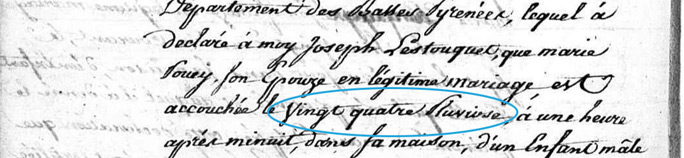 Departement des Basses Pyrenées, lequel á
declaré á moy Joseph Lestouquet, que marie
Pouey, son Epouze en légitime mariage est
accouchée le vingt quatre Pluviose, á une heure
aprés minuit, dans sa maison, d'un Enfant mâle